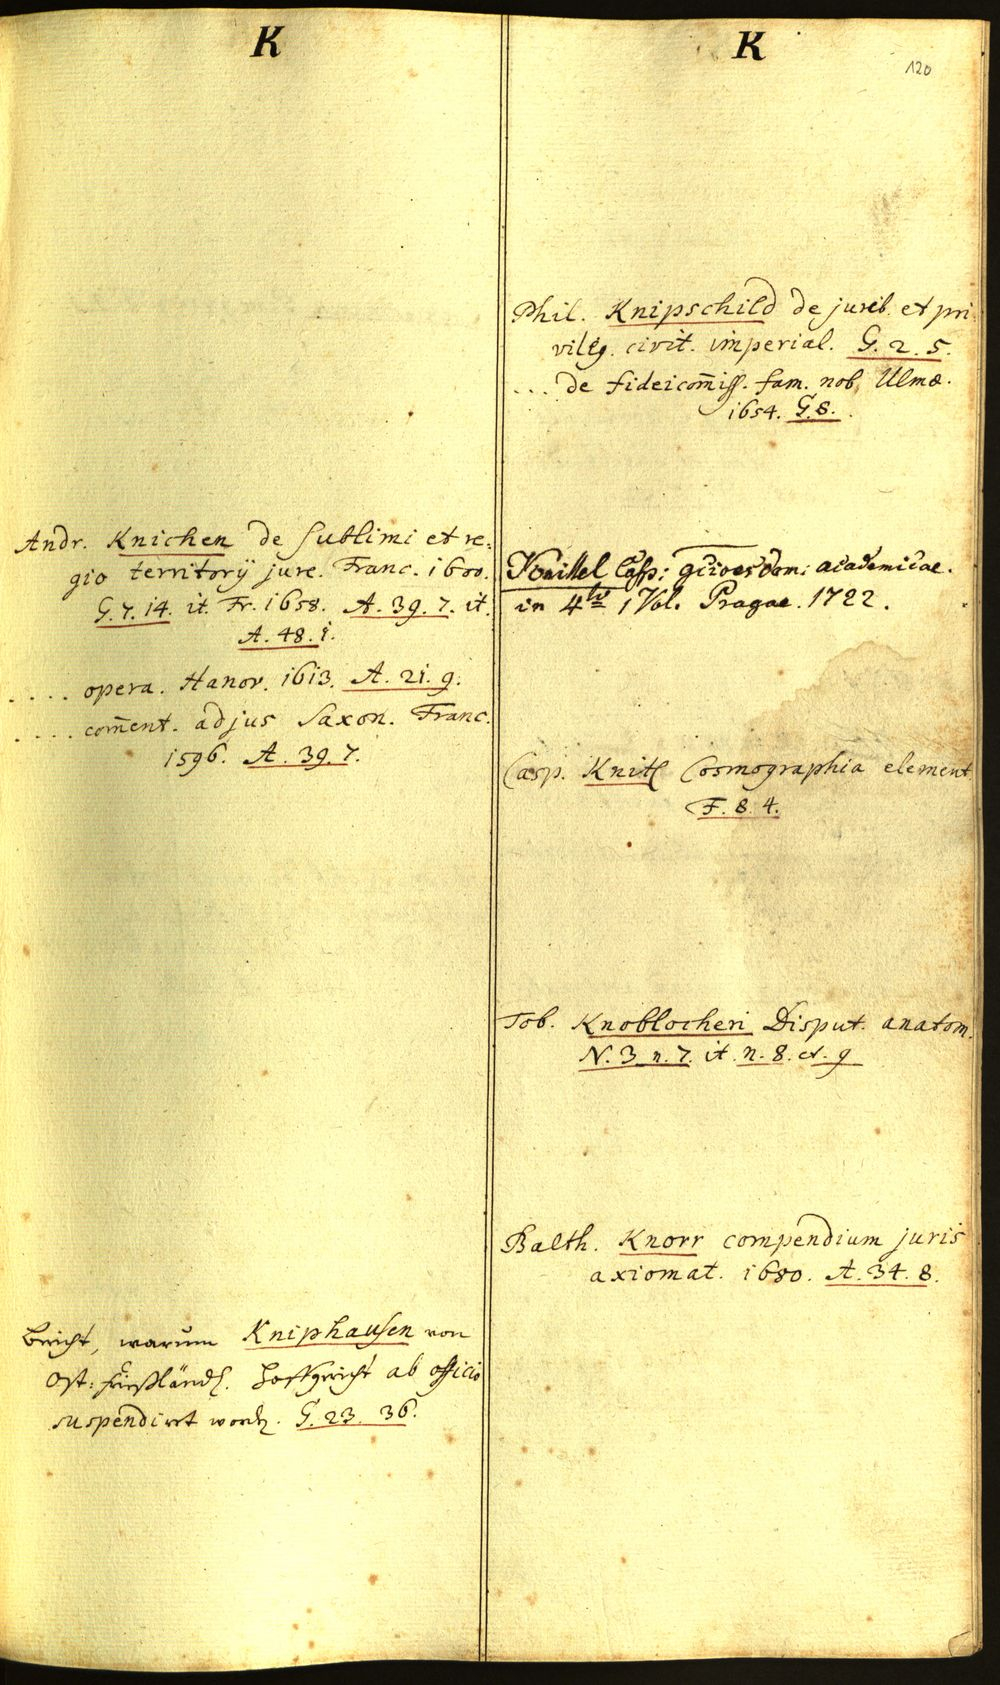 K
Andr. Knichen de sublimi et re-
gio territorij jure. Franc. 1600.
G. 7. 14. it. Fr. 1658. A. 39. 7. it.
A. 48. 1.
.... opera. Hanov. 1613. A. 21. 9.
.... com̄ent. ad jus Saxon. Franc.
1596. A. 39. 7.
Bericht, warum Kniphausen von
Ost: frießländ. Hoffgericht ab officio
suspendiret word. G. 23. 36.
K
120
Phil. Knipschild de jurib. et pri-
vileg. civit. imperial. G. 2. 5.
... de fideicom̄iss. fam. nob. Ulmæ.
1654. G. 8.
Knittel Casp: academicae.
in 4to 1 Vol. Pragae. 1722.
Casp. Knitl Cosmographia element.
F. 8. 4.
Tob. Knoblocheri Disput. anatom.
N. 3 n. 7. it. n. 8. et. 9
Balth. Knorr compendium juris
axiomat. 1680. A. 34. 8.